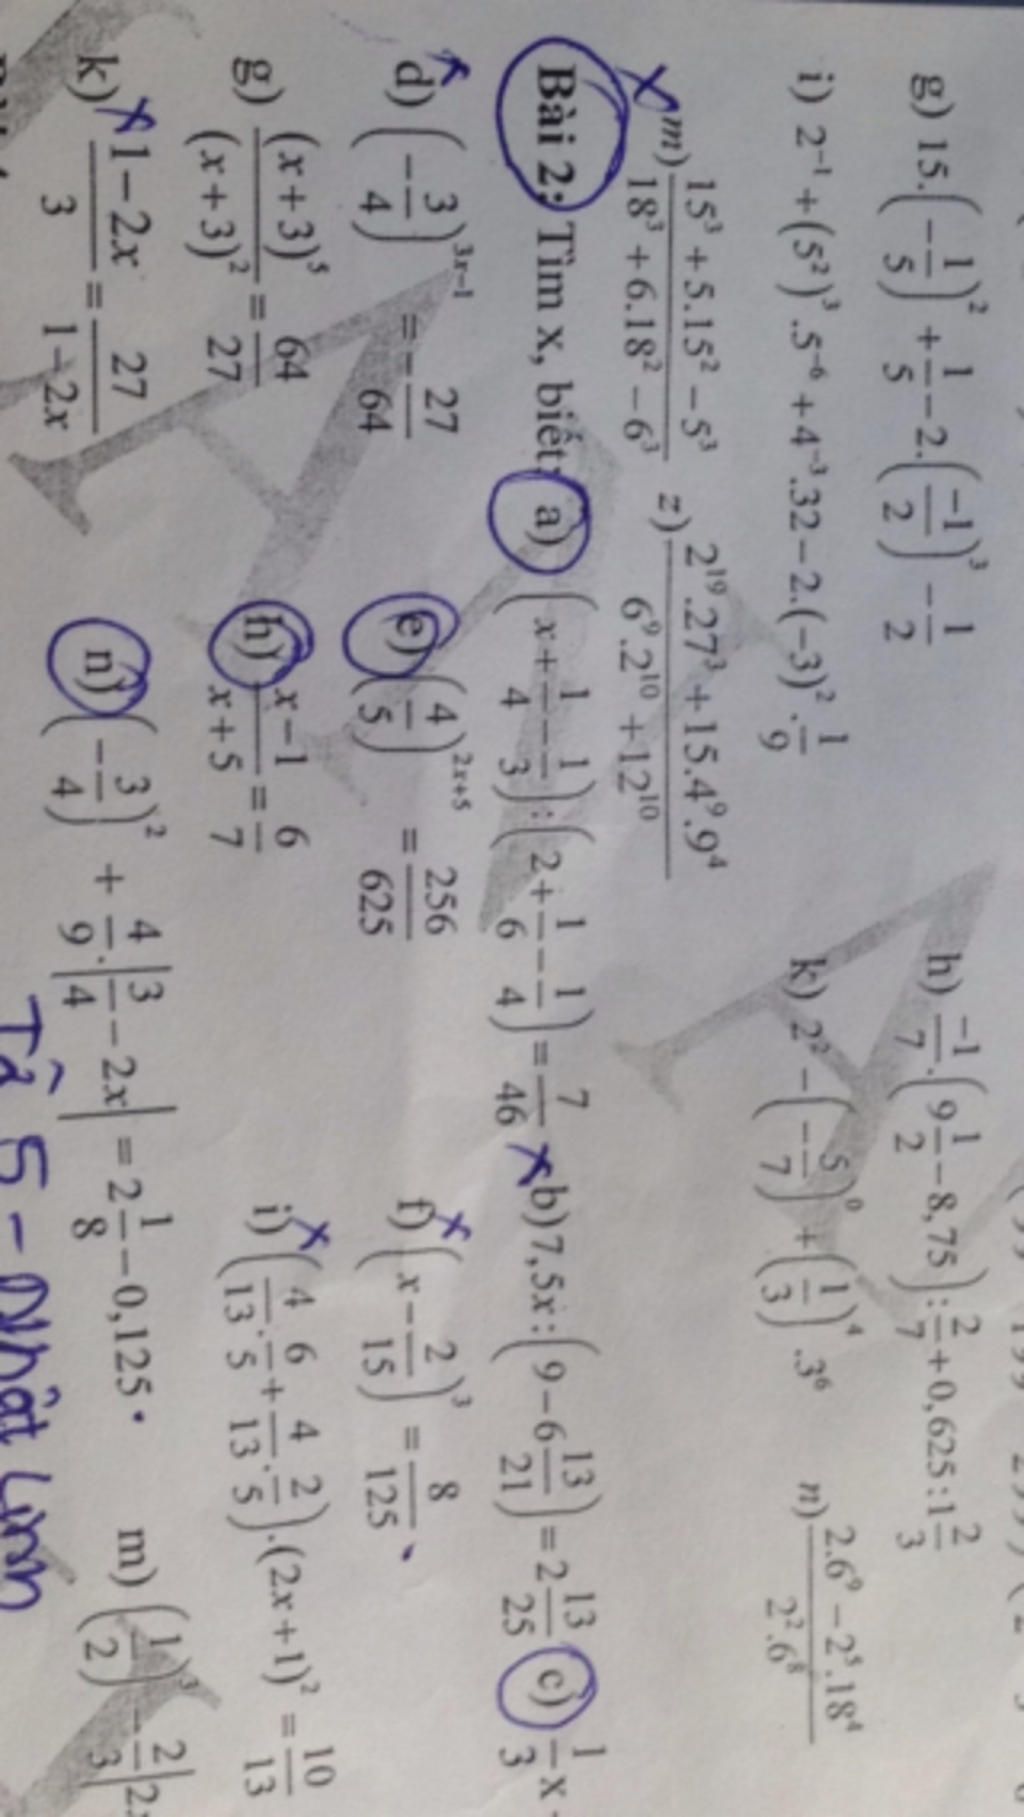 g) 15.(-1/5)² + 1/5 - 2.(-1/2)³ - 1/2 h) -1/7.(9 1/2 - 8,75) : 2/7 + 0,625 : 1 2/3
i) 2⁻¹ + (5²)³.5⁻⁶ + 4⁻³.32 - 2.(-3)².1/9 k) 2² - (-5/7)⁰ + (1/3)⁴.3⁶ n) (2.6⁹ - 2⁵.18⁴)/(2².6⁸)
m) (15³ + 5.15² - 5³)/(18³ + 6.18² - 6³) z) (2¹⁹.27³ + 15.4⁹.9⁴)/(6⁹.2¹⁰ + 12¹⁰)
Bài 2: Tìm x, biết: a) (x + 1/4 - 1/3) : (2 + 1/6 - 1/4) = 7/46 b) 7,5x : (9 - 6 13/21) = 2 13/25 c) 1/3 x
d) (-3/4)³ˣ⁻¹ = -27/64 e) (4/5)²ˣ⁺⁵ = 256/625 f) (x - 2/15)³ = 8/125
g) (x+3)⁵/(x+3)² = 64/27 h) (x-1)/(x+5) = 6/7 i) (4/13.6/5 + 4/13.2/5).(2x+1)² = 10/13
k) (1-2x)/3 = 27/(1-2x) n) (-3/4)² + 4/9.|3/4 - 2x| = 2 1/8 - 0,125. m) (1/2)³ - 2/3|2x
Tổ 5 - Nhật Linh